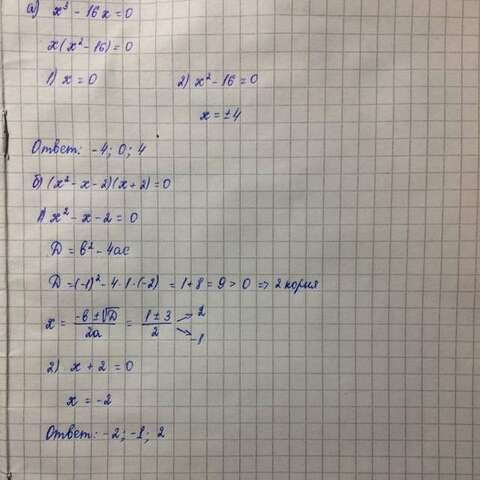 а) x³ - 16x = 0
x(x² - 16) = 0
1) x = 0 2) x² - 16 = 0
x = ±4
Ответ: -4; 0; 4
б) (x² - x - 2)(x + 2) = 0
1) x² - x - 2 = 0
D = b² - 4ac
D = (-1)² - 4·1·(-2) = 1 + 8 = 9 > 0 => 2 корня
x = (-b ± √D)/2a = (1 ± 3)/2 → 2 → -1
2) x + 2 = 0
x = -2
Ответ: -2; -1; 2